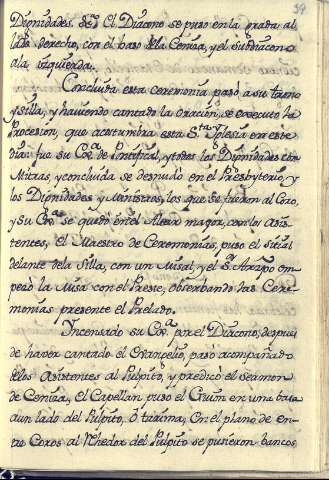 39
Dignidades. &c. El Diacono se puso en la grada al
lado derecho, con el baso de la Ceniza, y el subdiacono
a la izquierda.
Concluida esta ceremonia pasó a su trono
y silla, y haviendo cantado la oración, se executó la
Procesion, que acostumbra esta Sta. Yglesia en este
dia: fue su Exa. de Pontifical, y todos los Dignidades con
Mitras, y concluida se desnudó en el Presbyterio, y
los Dignidades y Ministros, los que se fueron al Coro,
y su Exa. se quedó en el Altar mayor, con los Asis-
tentes, El Maestro de Ceremonias, puso el sitial
delante de la Silla, con un Misal, y el Sr. Arzpo. em-
pezó la Misa con el Preste, observando las Cere-
monias presente el Prelado.
Yncensado su Exa. por el Diacono, despues
de haver cantado el Evangelio, pasó acompañado
de los Asistentes al Pulpito, y predicó el sermon
de Ceniza, El Capellan puso el Guion en una basa
a un lado del Pulpito, ó tarima, En el plano de en-
tre Coros al rededor del Pulpito se pusieron bancos